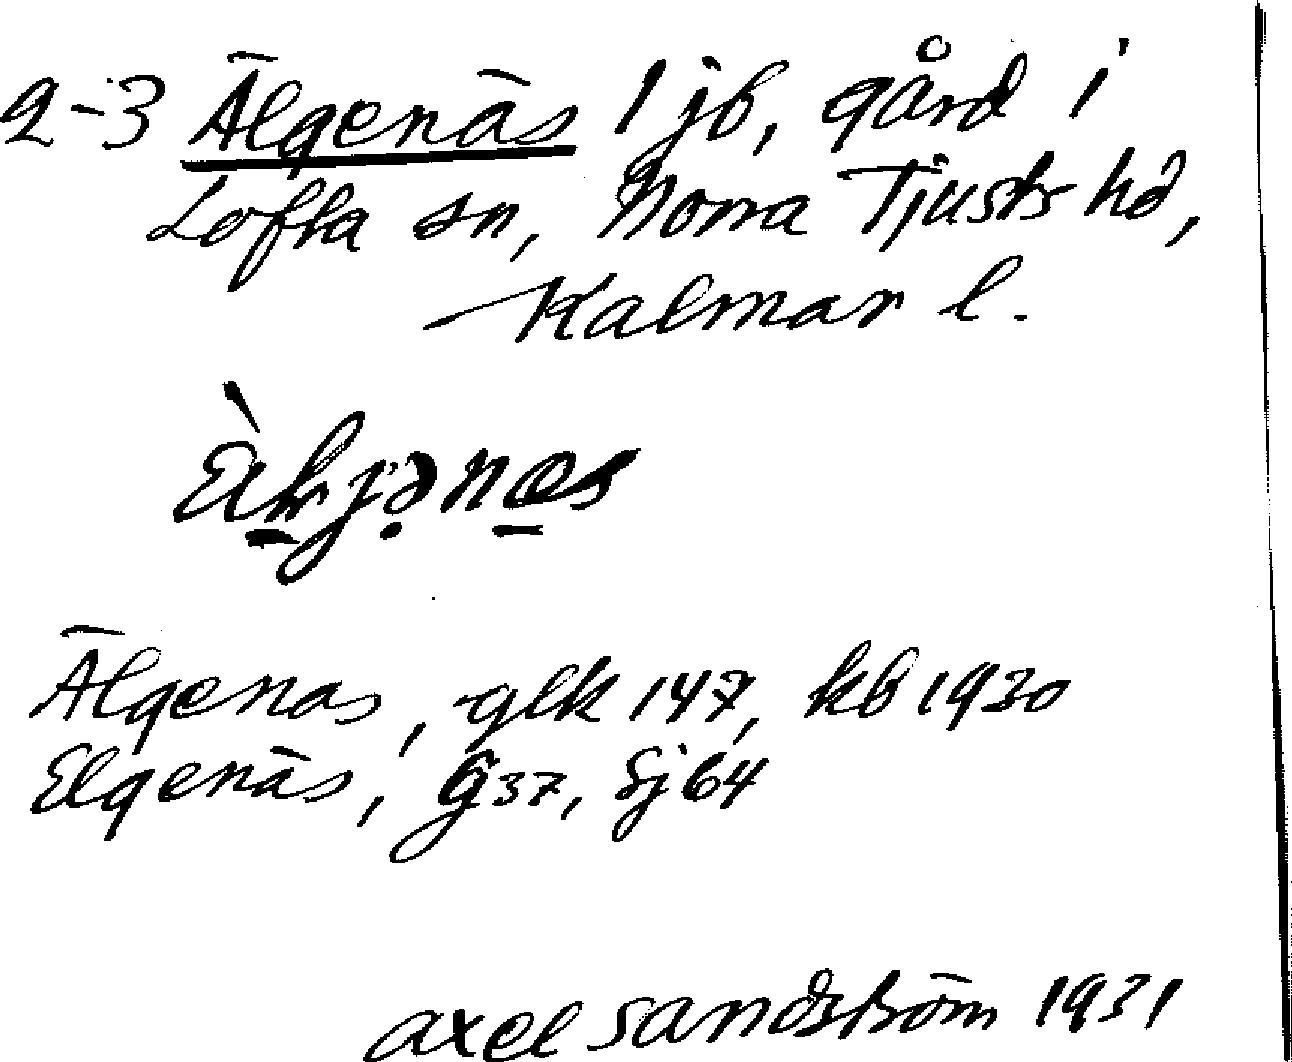 2-3 Älgenäs 1 jb, gård i
Lofta sn, Norra Tjusts hd,
Kalmar l.
Älgenäs, glk 147, kb 1930
Elgenäs, G37, Sj64
Axel Sandström 1931